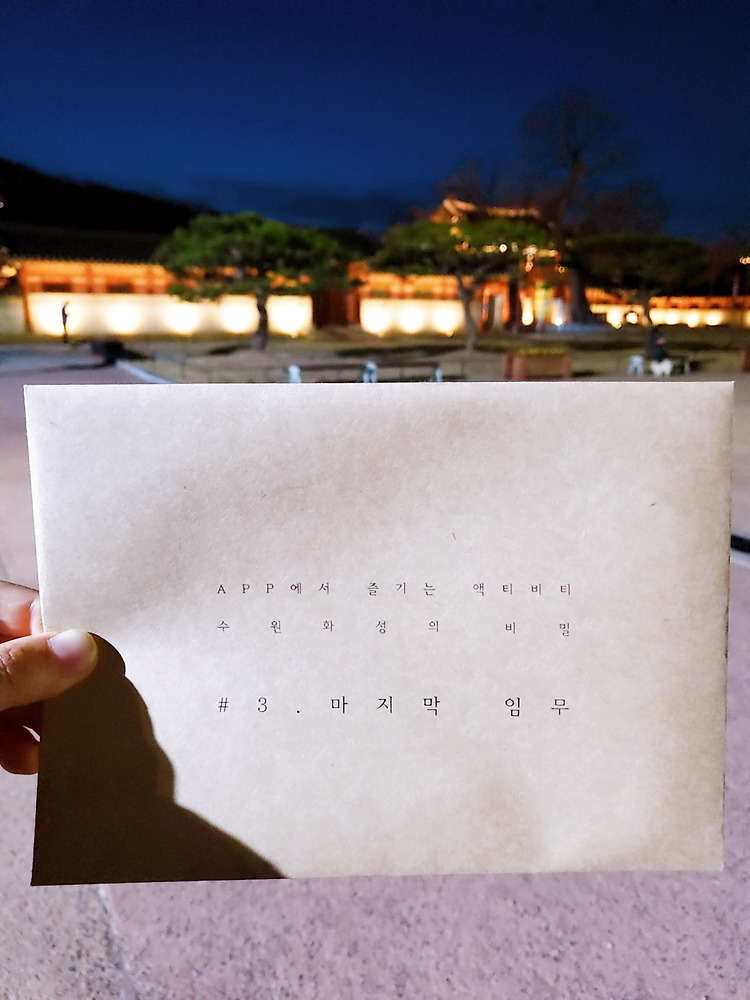 APP에서 즐기는 액티비티
수원화성의 비밀
#3. 마지막 임무